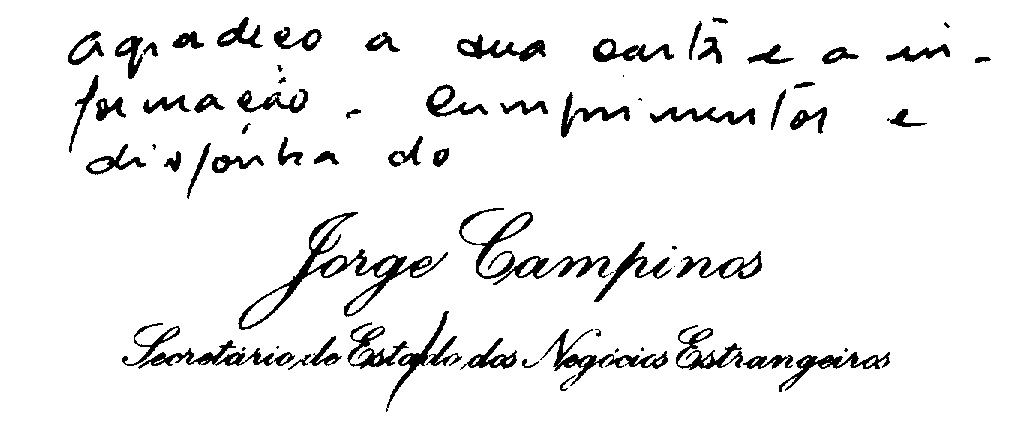 agradeço a sua carta e a in-
formação. Cumprimentos e
disponha do
Jorge Campinos
Secretário de Estado dos Negócios Estrangeiros